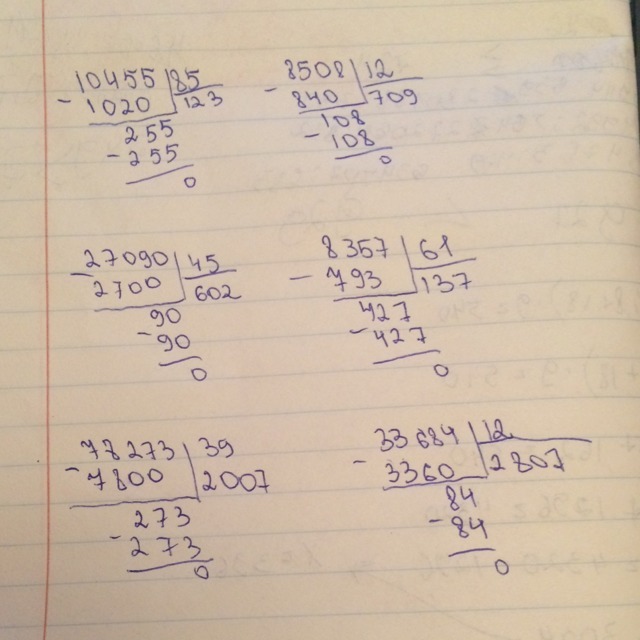 10455 85
- 1020 123
255
- 255
0
8508 12
- 840 709
108
- 108
0
27090 45
- 2700 602
90
- 90
0
8357 61
- 793 137
427
- 427
0
78273 39
- 7800 2007
273
- 273
0
33684 12
- 3360 2807
84
- 84
0